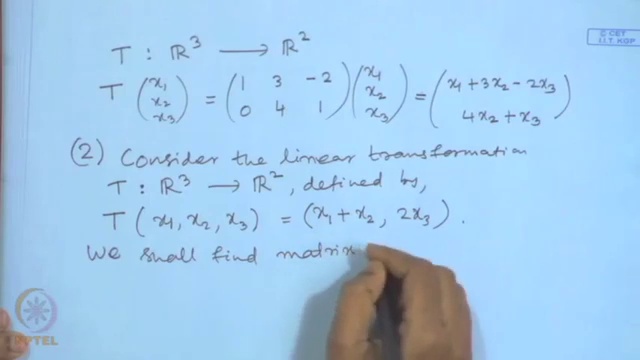 © CET
I.I.T. KGP
T : ℝ³ ⟶ ℝ²
T (x₁ x₂ x₃) = (1 3 -2 0 4 1) (x₁ x₂ x₃) = (x₁ + 3x₂ - 2x₃ 4x₂ + x₃)
(2) Consider the linear transformation
T : ℝ³ ⟶ ℝ², defined by,
T (x₁, x₂, x₃) = (x₁ + x₂, 2x₃).
We shall find matrix
NPTEL